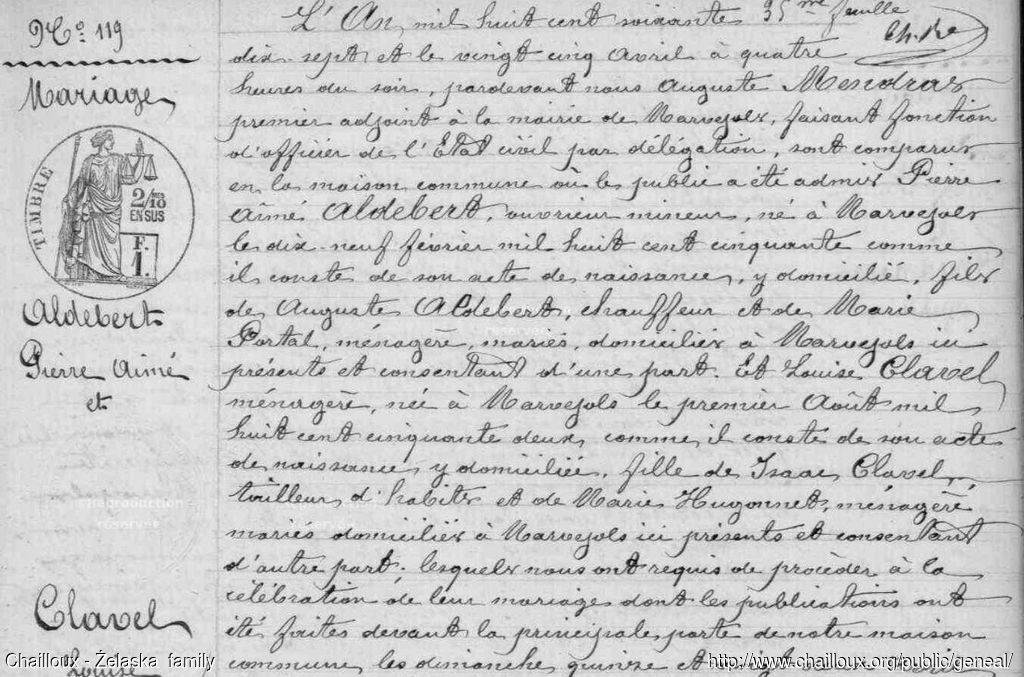 N° 119
Mariage
TIMBRE
2/10
EN SUS
F.
1.
Aldebert
Pierre Aimé
et
Clavel
Louise
35me feuille
L'An mil huit cent soixante
dix-sept et le vingt cinq Avril à quatre
heures du soir, pardevant nous Auguste Mendras
premier adjoint à la mairie de Marvejols, faisant fonction
d'officier de l'Etat civil par délégation, sont comparus
en la maison commune où le public a été admis Pierre
Aimé Aldebert, ouvrier mineur, né à Marvejols
le dix-neuf février mil huit cent cinquante comme
il conste de son acte de naissance, y domicilié, fils
de Auguste Aldebert, chauffeur et de Marie
Portal, ménagère, mariés, domiciliés à Marvejols ici
présents et consentant d'une part. Et Louise Clavel
ménagère, née à Marvejols le premier Août mil
huit cent cinquante deux, comme il conste de son acte
de naissance, y domiciliée, fille de Isaac Clavel,
tailleur d'habits et de Marie Hugonnet, ménagère
mariés domiciliés à Marvejols ici présents et consentant
d'autre part; lesquels nous ont requis de procéder à la
célébration de leur mariage dont les publications ont
été faites devant la principale porte de notre maison
commune, les dimanche quinze et
Reproduction
réservée
Chailloux - Żelaska family
http://www.chailloux.org/public/geneal/